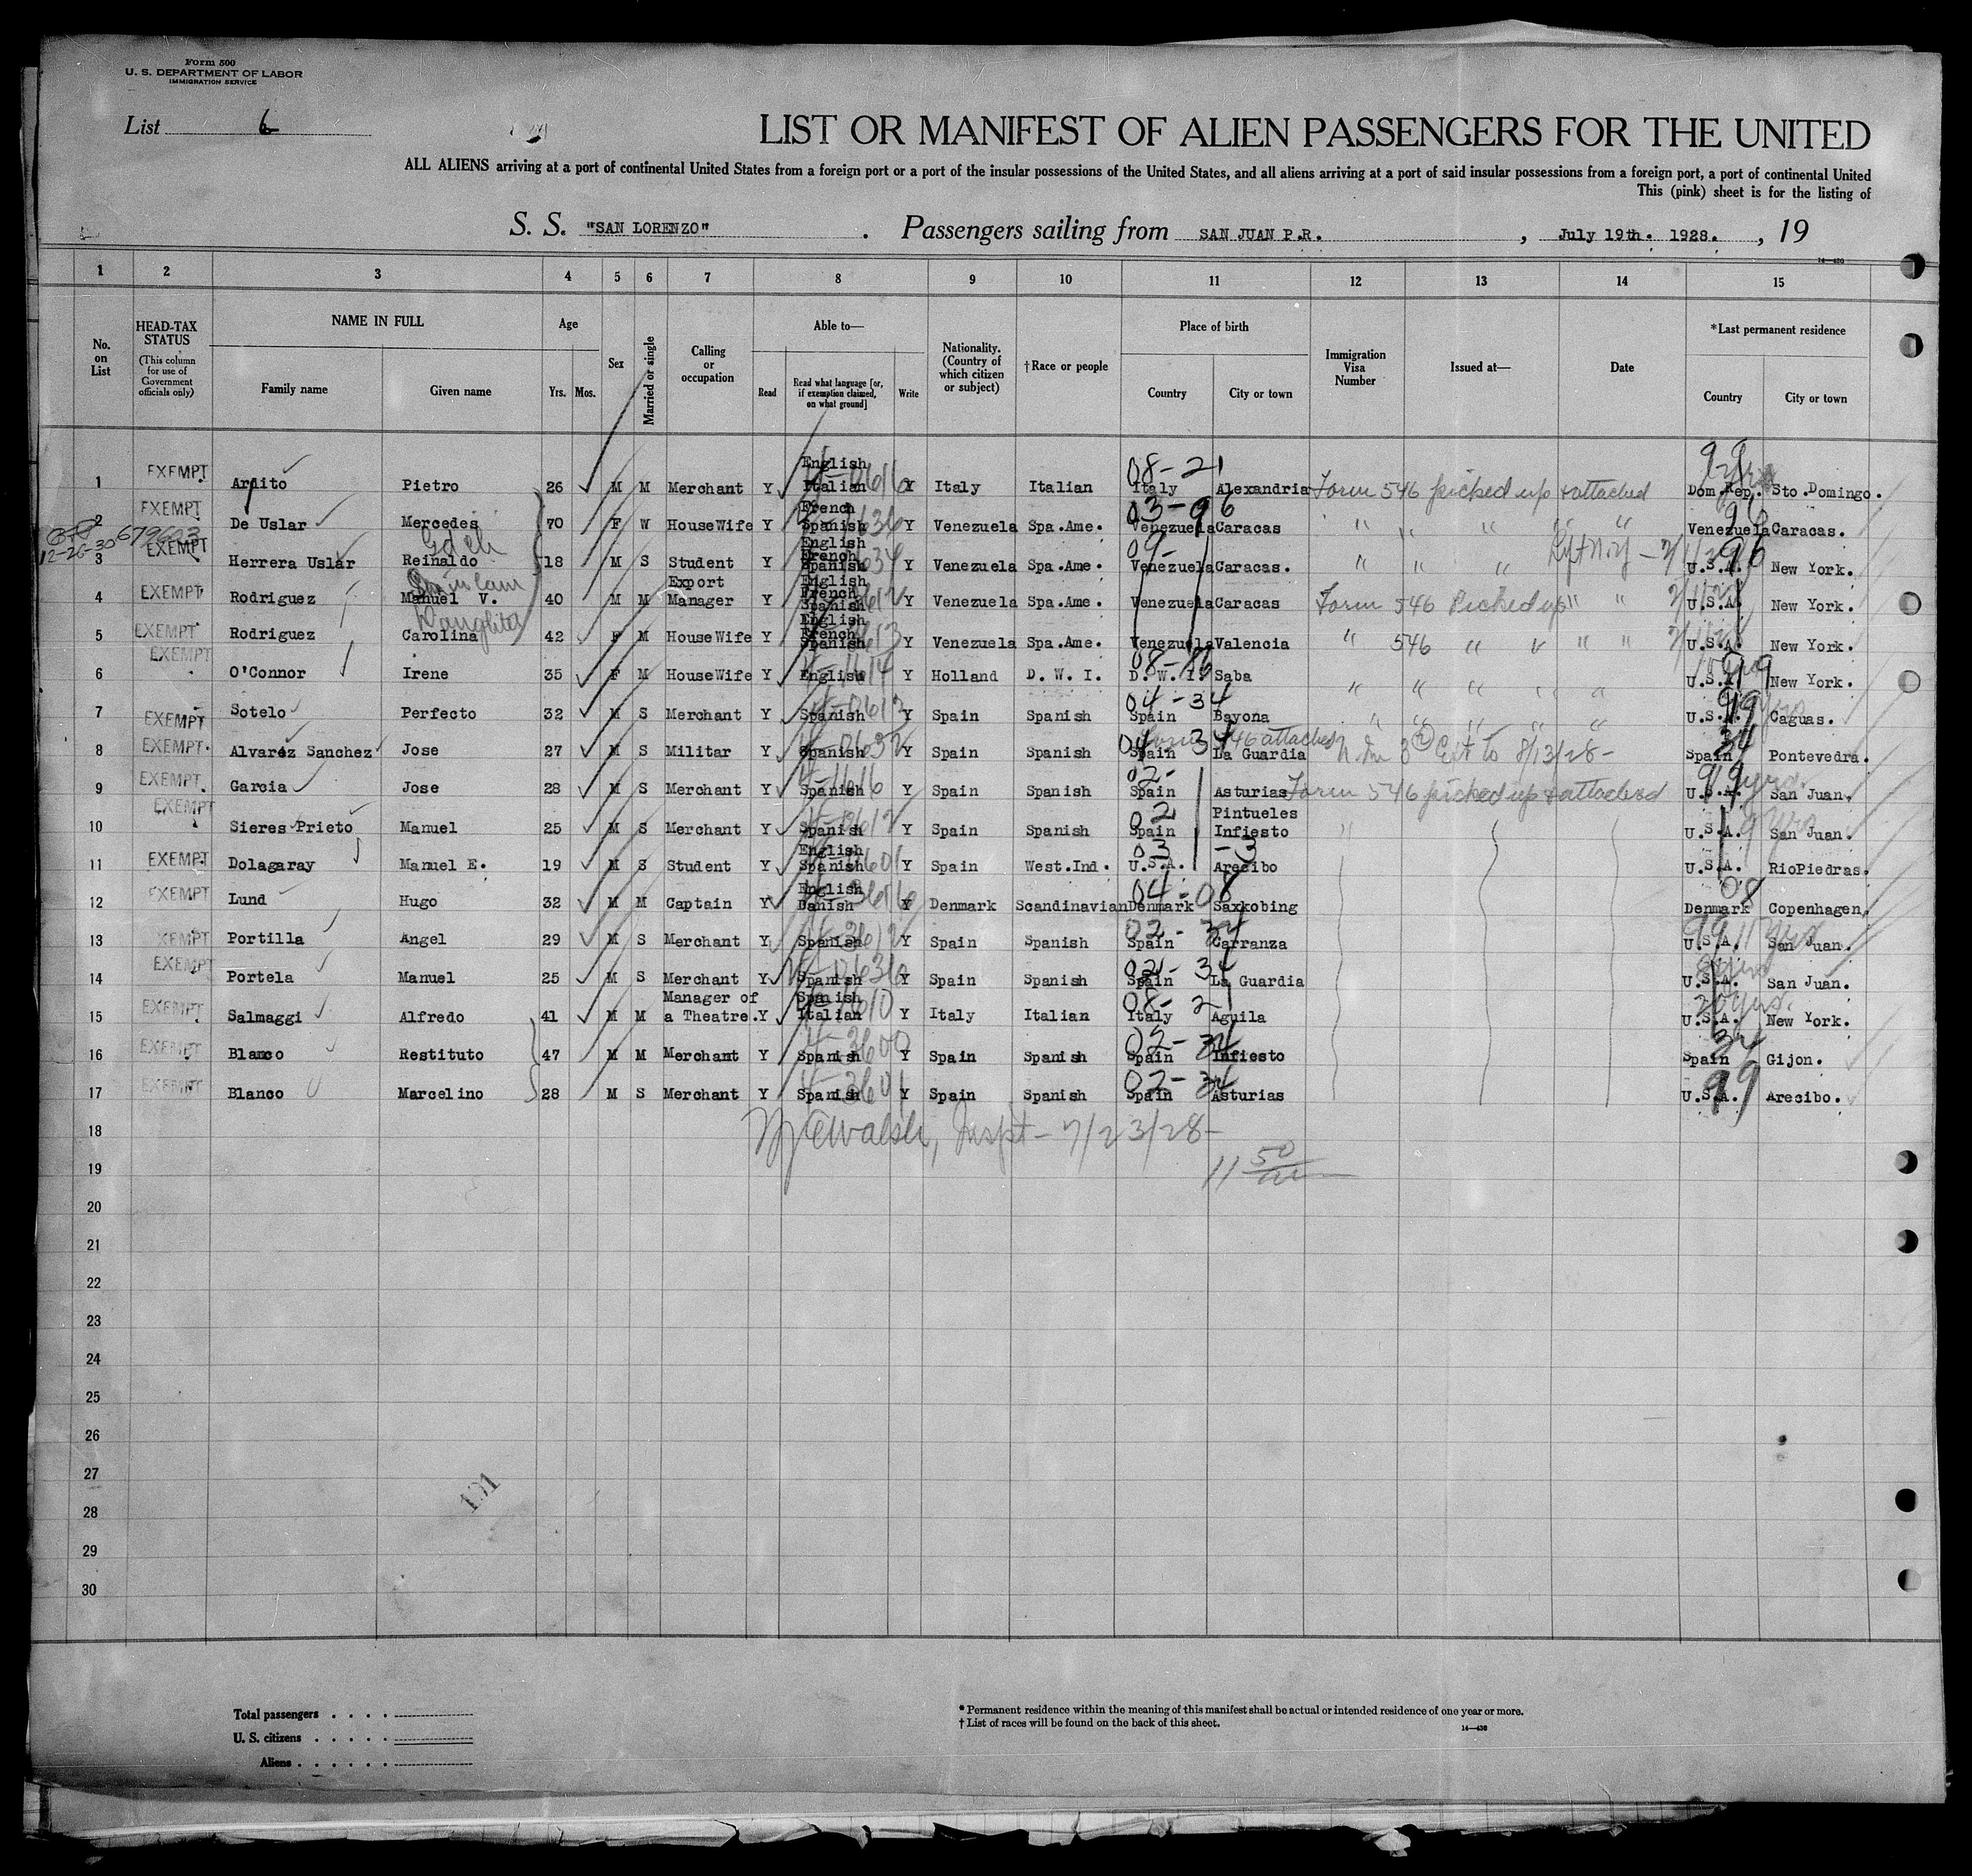 Form 500
U. S. DEPARTMENT OF LABOR
IMMIGRATION SERVICE
List 6
LIST OR MANIFEST OF ALIEN PASSENGERS FOR THE UNITED
ALL ALIENS arriving at a port of continental United States from a foreign port or a port of the insular possessions of the United States, and all aliens arriving at a port of said insular possessions from a foreign port, a port of continental United
This (pink) sheet is for the listing of
S. S. "SAN LORENZO" . Passengers sailing from SAN JUAN P.R. , July 19th. 1928. , 19
14—430
1 2 3 4 5 6 7 8 9 10 11 12 13 14 15
No. on List
HEAD-TAX STATUS (This column for use of Government officials only)
NAME IN FULL
Family name Given name
Age
Yrs. Mos.
Sex
Married or single
Calling or occupation
Able to—
Read Read what language [or, if exemption claimed, on what ground] Write
Nationality. (Country of which citizen or subject)
†Race or people
Place of birth
Country City or town
Immigration Visa Number
Issued at—
Date
*Last permanent residence
Country City or town
1 EXEMPT Ardito Pietro 26 M M Merchant Y English Italian Y Italy Italian 08-21 Italy Alexandria Form 546 picked up & attached Dom.Rep. Sto.Domingo.
2 EXEMPT De Uslar Mercedes 70 F W HouseWife Y French Spanish Y Venezuela Spa.Ame. 03-96 Venezuela Caracas " " " " " Venezuela Caracas.
12-26-30 679623
3 EXEMPT Herrera Uslar Reinaldo Gd ch 18 M S Student Y English French Spanish Y Venezuela Spa.Ame. Venezuela Caracas. " " " U.S.A. New York.
4 EXEMPT Rodriguez Manuel V. Son in law 40 M M Export Manager Y English French Spanish Y Venezuela Spa.Ame. Venezuela Caracas Form 546 Picked up " " U.S.A. New York.
5 EXEMPT Rodriguez Carolina Daughter 42 F M HouseWife Y English French Spanish Y Venezuela Spa.Ame. Venezuela Valencia " 546 " " " " U.S.A. New York.
6 EXEMPT O'Connor Irene 35 F M HouseWife Y English Y Holland D. W. I. D. W. I. Saba " " " " " U.S.A. New York.
7 EXEMPT Sotelo Perfecto 32 M S Merchant Y Spanish Y Spain Spanish 04-34 Spain Bayona " " " " " U.S.A. Caguas.
8 EXEMPT Alvarez Sanchez Jose 27 M S Militar Y Spanish Y Spain Spanish 04 34 Spain La Guardia Form 546 attached Ext to 8/13/28- Spain 34 Pontevedra.
9 EXEMPT Garcia Jose 28 M S Merchant Y Spanish Y Spain Spanish 02- Spain Asturias Form 546 picked up & attached U.S.A. San Juan.
10 EXEMPT Sieres Prieto Manuel 25 M S Merchant Y Spanish Y Spain Spanish 02 Spain Pintueles Infiesto " U.S.A. San Juan.
11 EXEMPT Dolagaray Manuel E. 19 M S Student Y English Spanish Y Spain West.Ind. 03 -3 U.S.A. Arecibo U.S.A. RioPiedras.
12 EXEMPT Lund Hugo 32 M M Captain Y English Danish Y Denmark Scandinavian 04-08 Denmark Saxkobing 08 Denmark Copenhagen.
13 EXEMPT Portilla Angel 29 M S Merchant Y Spanish Y Spain Spanish 02-34 Spain Carranza U.S.A. 11 yrs San Juan.
14 EXEMPT Portela Manuel 25 M S Merchant Y Spanish Y Spain Spanish 02-34 Spain La Guardia 8 yrs U.S.A. San Juan.
15 EXEMPT Salmaggi Alfredo 41 M M Manager of a Theatre. Y Spanish Italian Y Italy Italian 08-21 Italy Aguila 20 yrs. U.S.A. New York.
16 EXEMPT Blanco Restituto 47 M M Merchant Y Spanish Y Spain Spanish 02-34 Spain Infiesto 34 Spain Gijon.
17 EXEMPT Blanco Marcelino 28 M S Merchant Y Spanish Y Spain Spanish 02-34 Spain Asturias 99 U.S.A. Arecibo.
18 Walsh, Inspt- 7/23/28-
19 11 50
20
21
22
23
24
25
26
27
28
29
30
101
Total passengers . . . .
U. S. citizens . . . . .
Aliens . . . . . . .
* Permanent residence within the meaning of this manifest shall be actual or intended residence of one year or more.
† List of races will be found on the back of this sheet.
14—430